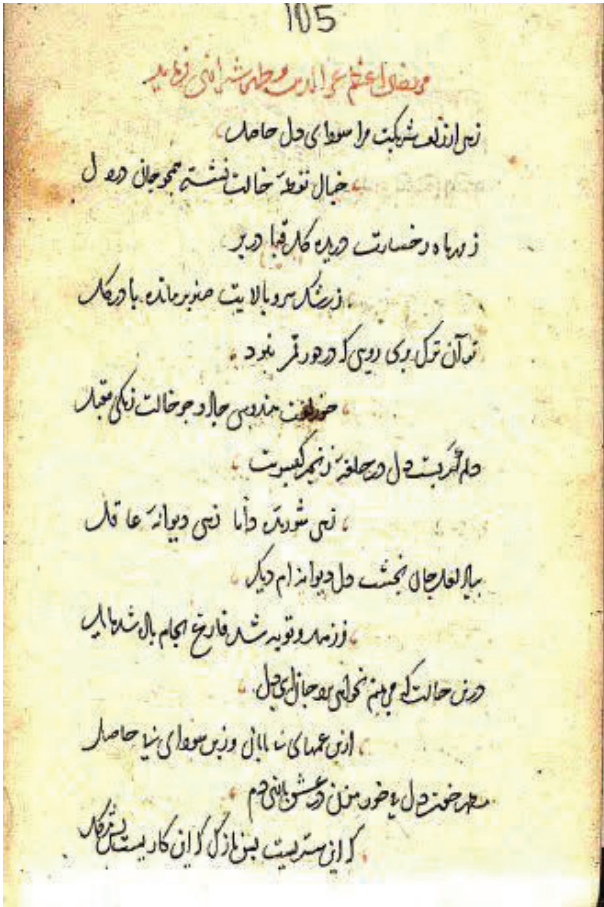 105
زهی از زلف شبرنگت مرا سودای دل حاصل
خیال نقطهٔ خالت نشسته همچو جان در دل
ز مهر ماه رخسارت دریده گل قبا در بر
ز رشک سرو بالایت صنوبر مانده پا در گل
تو آن ترک پری رویی که در دور قمر نبود
چو زلفت هندوی جادو چو خالت زنگی مقبل
دلم بست دل در حلقهٔ زنجیر گیسویت
زهی شوریدهٔ دانا زهی دیوانهٔ عاقل
بیا لعل جان بخشت دل دیوانه‌ام دیگر
ز زهد و توبه شد فارغ بجام باده شد مایل
درین حالت که می‌بینم نخواهی برد جان ای دل
ازین غمهای بی پایان وزین سودای بی حاصل
دل خود مزن در عشقبازی دم
که این سریست بس نازک که این کاریست بس مشکل